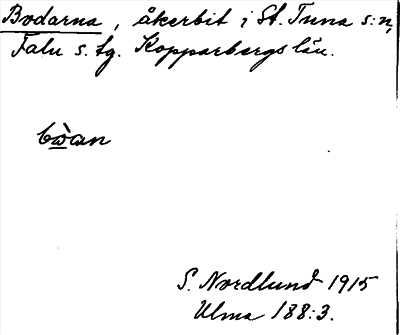 Bodarna, åkerbit i St. Tuna s:n,
Falu s. tg. Kopparbergs län.
S. Nordlund 1915
Ulma 188:3.